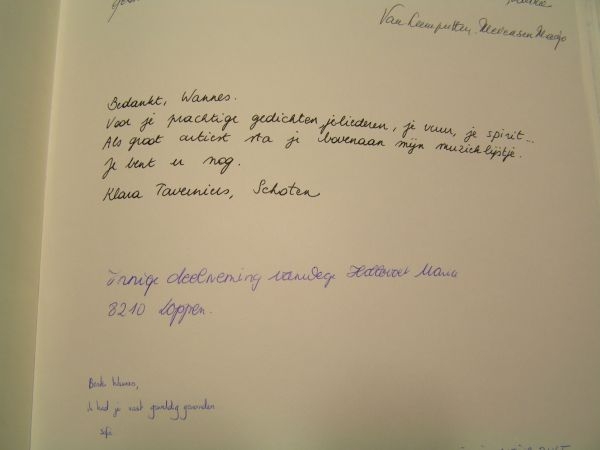 Van Leemputten - Mertensen Nadja
Bedankt, Wannes.
Voor je prachtige gedichten, je liederen, je vuur, je spirit...
Als groot artiest sta je bovenaan mijn muzieklijstje.
Je bent er nog.
Klara Taverniers, Schoten
innige deelneming vanwege Hallevoet Maria
8210 Loppem.
Beste Wannes,
Ik had je vast geweldig gevonden